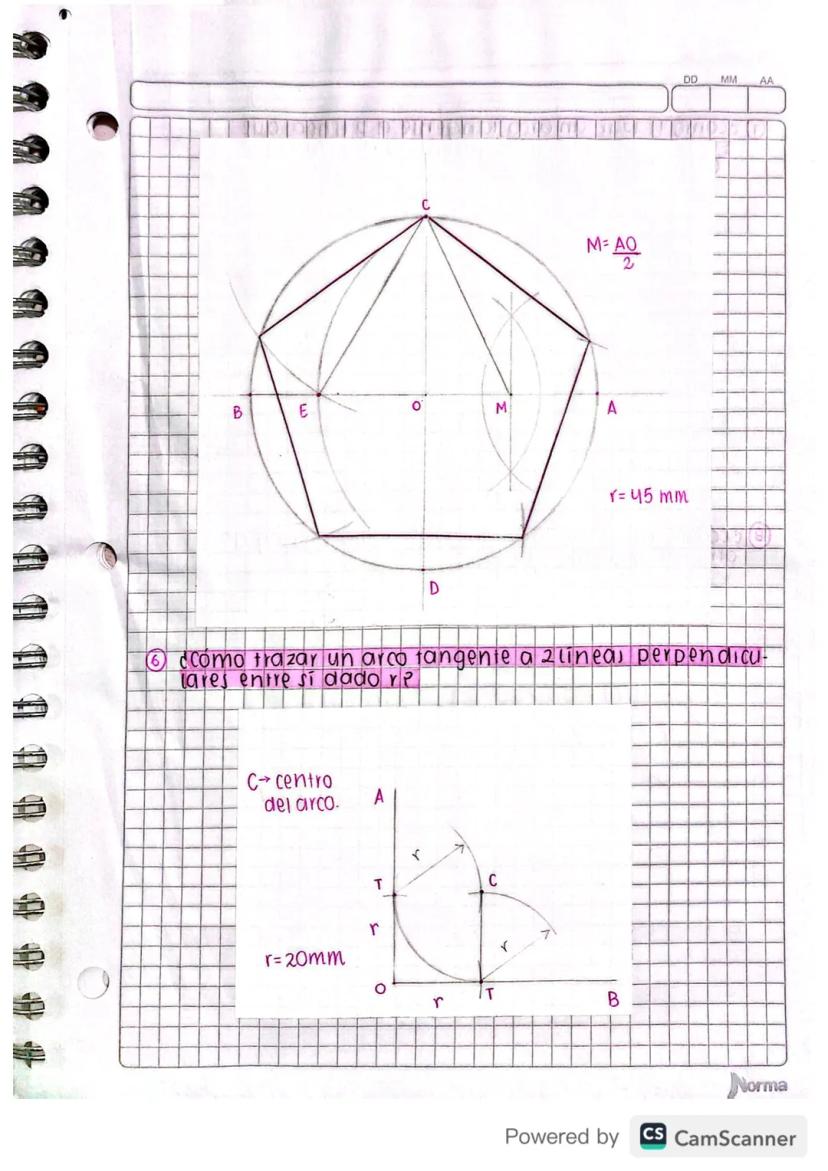 DD MM AA
C
M= AO
2
B E O M A
r= 45 mm
D
6 ¿cómo trazar un arco tangente a 2 líneas perpendicu-
lares entre sí dado r?
C→ centro
del arco.
A
r
T
C
r
r
r= 20mm
O
r
T
B
Norma
Powered by CS CamScanner